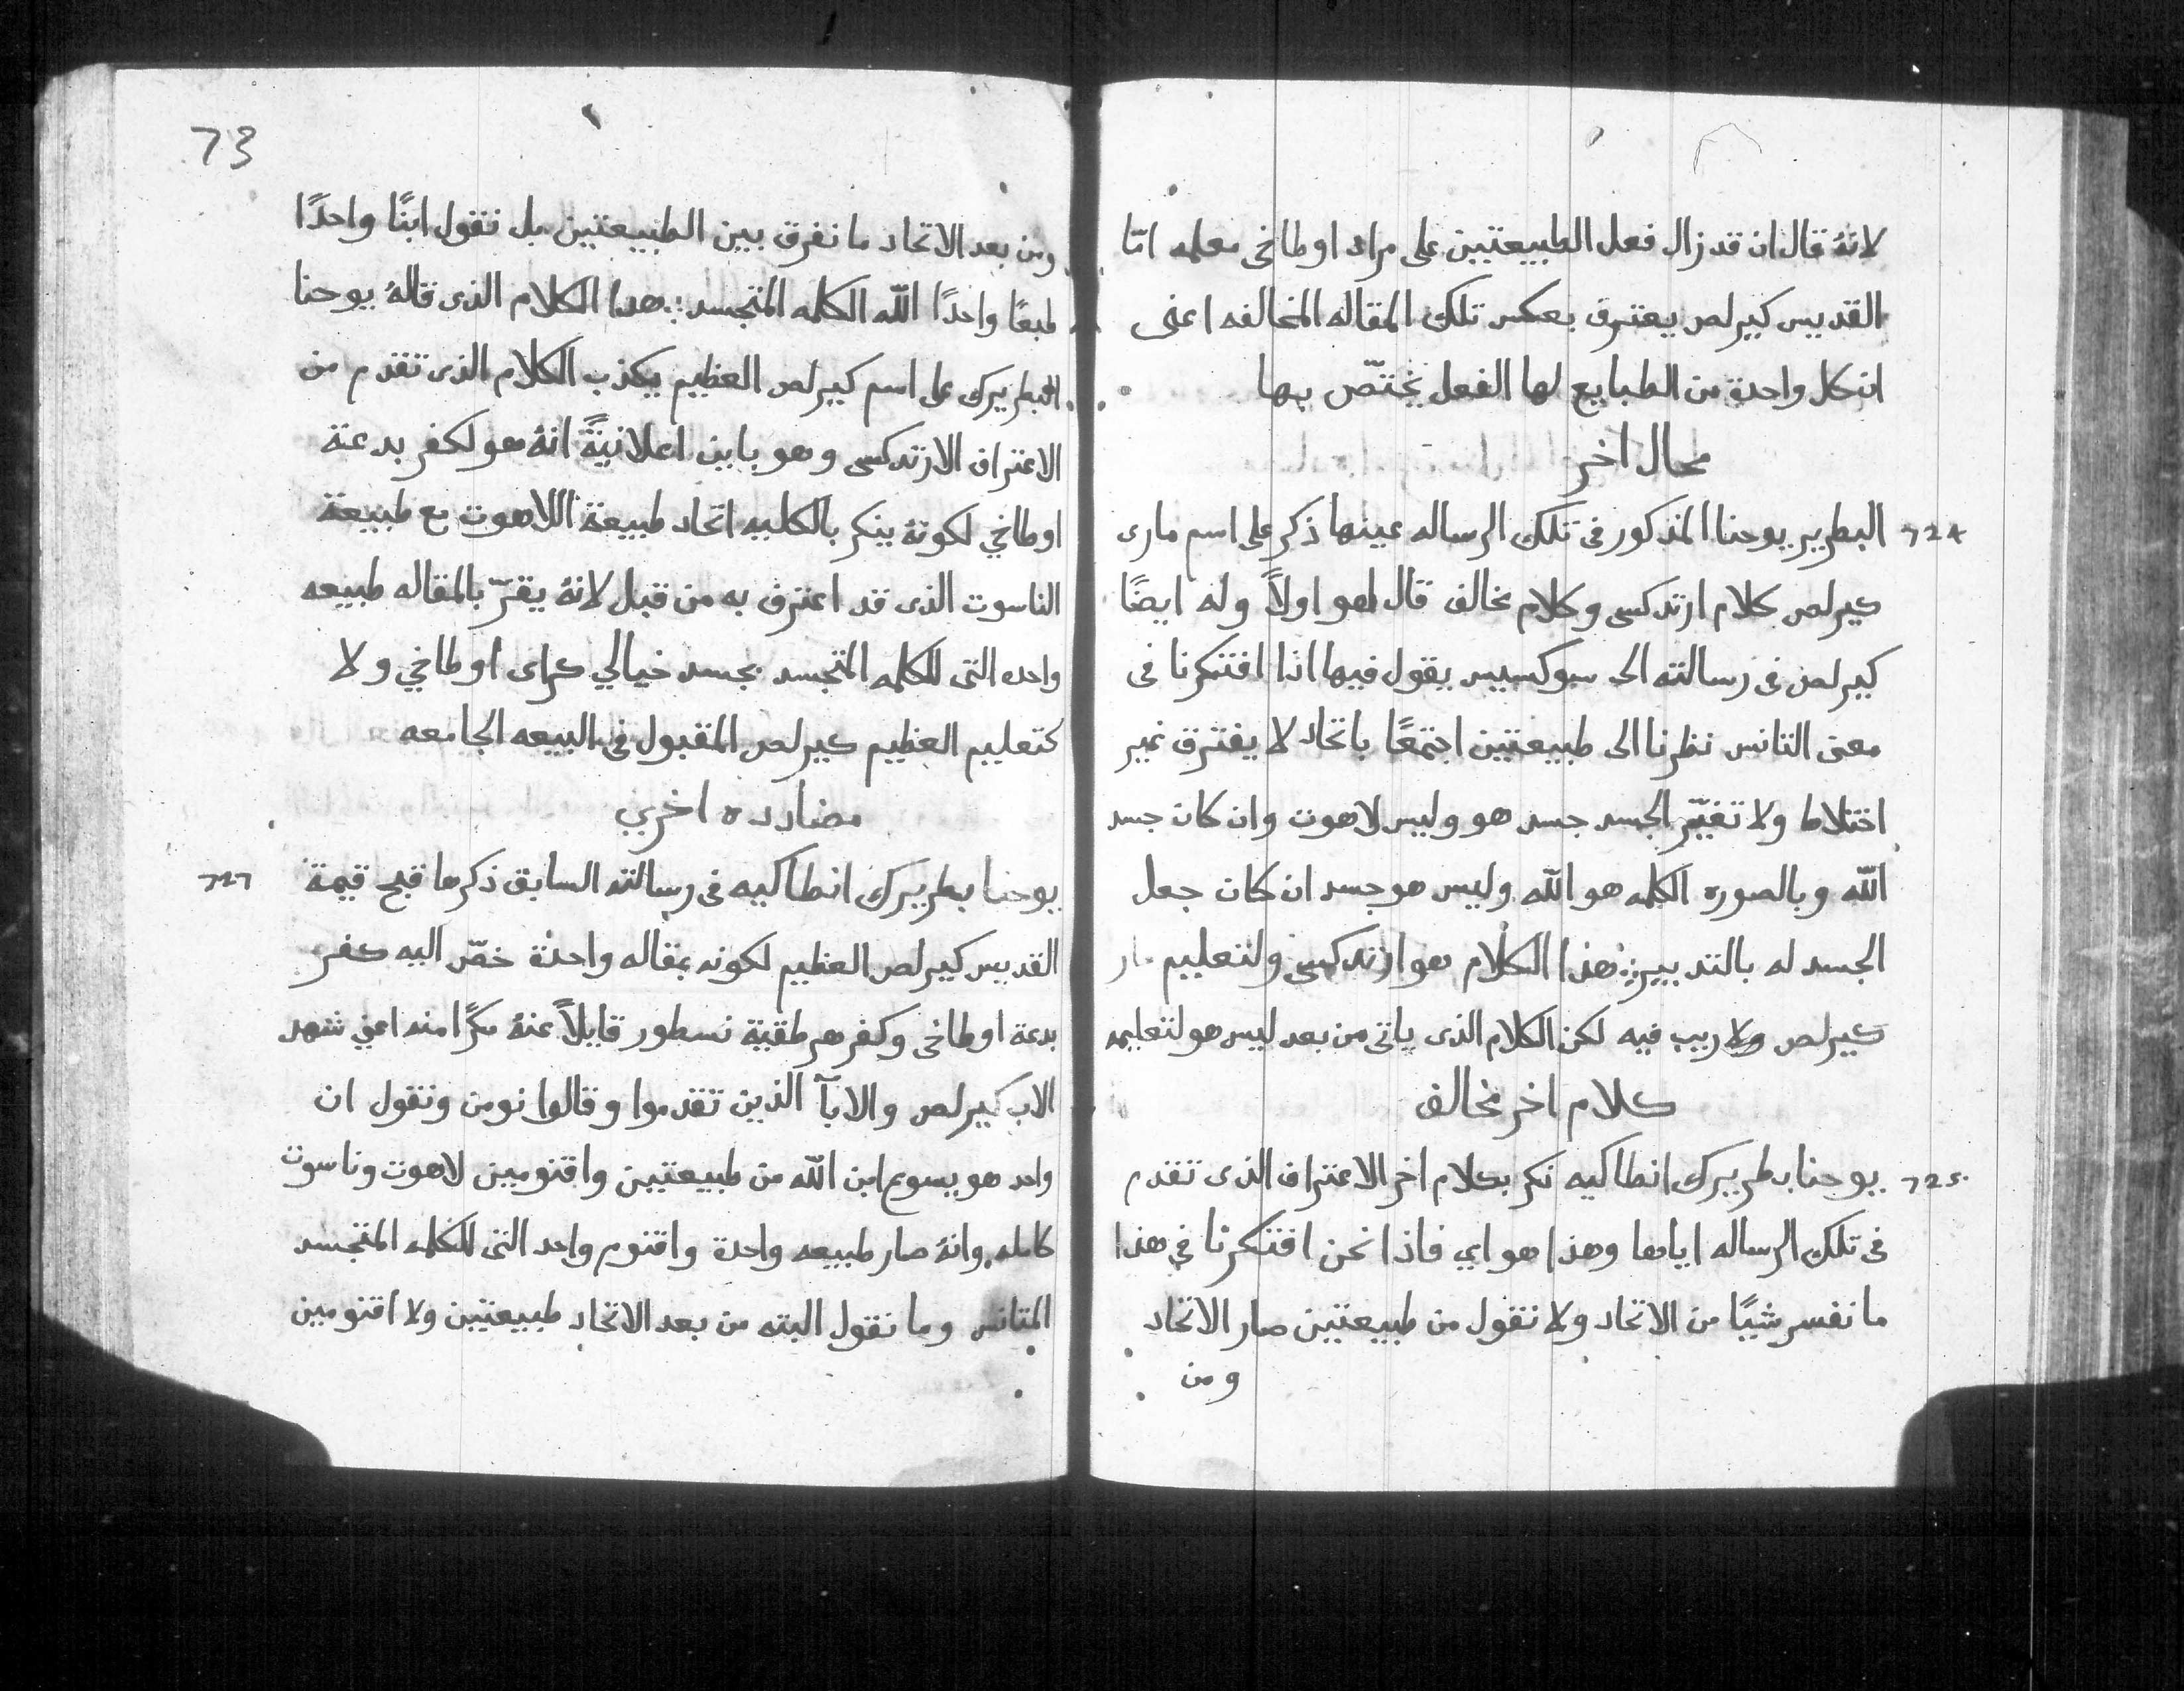 لانهٔ قال ان قد زال فعل الطبيعتين على مراد اوطاخى معلمه امّا
القديس كيرلص يعترف بعكس تلك المقاله المخالفه اعنى
ان كل واحدة من الطبايع لها الفعل يختصّ بها
محال اخر
٦٢٤ البطرير يوحنا المذكور فى تلك الرساله عينها ذكر على اسم مارى
كيرلص كلام ارتدكسى وكلام مخالف قال لهو اولاً وله ايضًا
كيرلص فى رسالته الى سوكسيس يقول فيها اذا افتكرنا فى
معنى التانس نظرنا الى طبيعتين اجتمعًا باتحاد لا يفترق غير
اختلاط ولا تغيّر الجسد جسد هو وليس لاهوت وان كان جسد
اللّه وبالصوره الكلمه هو اللّه وليس هو جسد ان كان جعل
الجسد له بالتدبير: هذا الكلام هو ارتدكسى ولتعليم مار
كيرلص ولا ريب فيه لكن الكلام الذى ياتى من بعد ليس هو لتعليمه
كلام اخر مخالف
٦٢٥ يوحنا بطريرك انطاكيه نكر بكلام اخر الاعتراف الذى تقدم
فى تلك الرساله اياها وهذا هو اي فاذا نحن افتكرنا في هذا
ما نفسر شيًا من الاتحاد ولا نقول من طبيعتين صار الاتحاد
ومن
73
ومن بعد الاتحاد ما نفرق بين الطبيعتين بل نقول ابنًا واحدًا
طبعًا واحدًا اللّه الكلمه المتجسد: هدا الكلام الذى قالهٔ يوحنا
البطريرك على اسم كيرلص العظيم يكذب الكلام الذى تقدم من
الاعتراف الارتدكسى وهو باين اعلانيةً انهٔ هو لكفر بدعة
اوطاخي لكونهٔ ينكر بالكليه اتحاد طبيعة اللاهوت مع طبيعة
الناسوت الذى قد اعترف به من قبل لانهٔ يقرّ بالمقاله طبيعه
واحده التى للكلمه المتجسد بجسد خيالي كراى اوطاخي ولا
كتعليم العظيم كيرلص المقبول فى البيعه الجامعه
مضادده اخرى
٦٢٦ يوحنا بطريرك انطاكيه فى رسالته السابق ذكرها قبح قيمة
القديس كيرلص العظيم لكونه بمقاله واحدة خصّ اليه كفر
بدعة اوطاخى وكفر هرطقية نسطور قايلاً عنهٔ مكرًا منه اعني شهد
الاب كيرلص والابآ الذين تقدموا وقالوا نومن ونقول ان
واحد هو يسوع ابن اللّه من طبيعتين واقنومين لاهوت وناسوت
كامله وانهٔ صار طبيعه واحدة واقنوم واحد التى للكلمه المتجسد
المتانس وما نقول البته من بعد الاتحاد طبيعتين ولا اقنومين